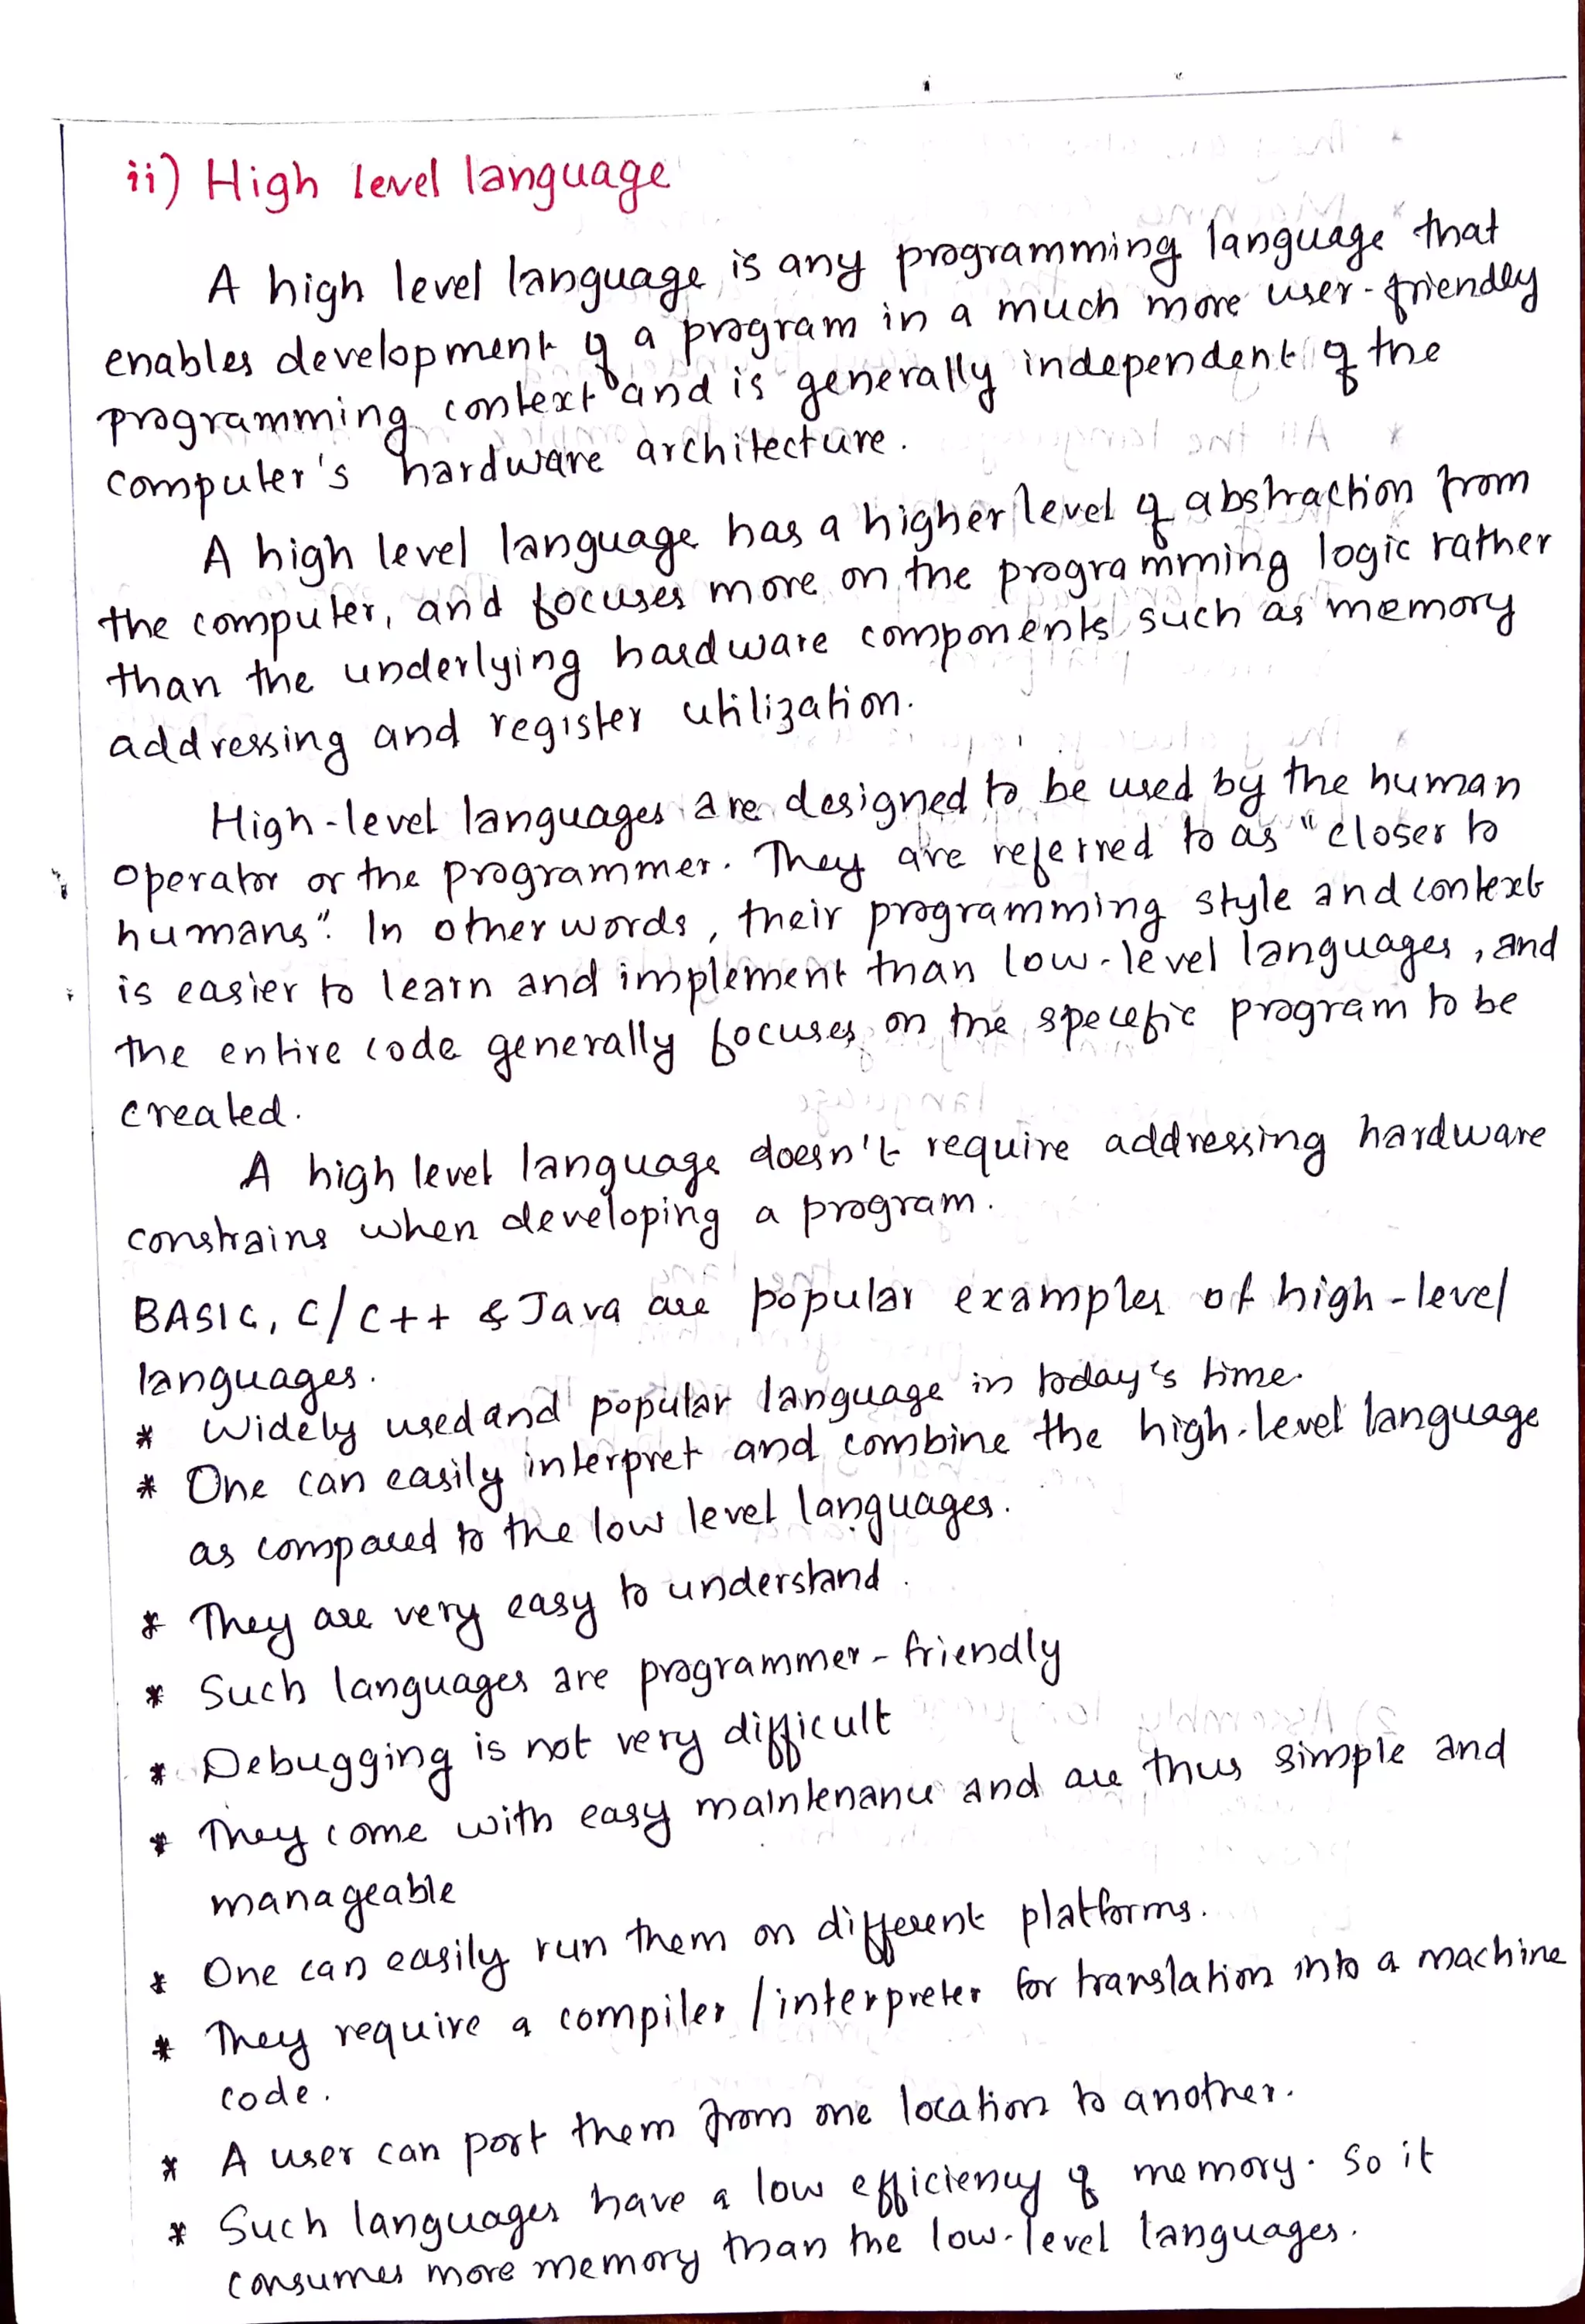 ii) High level language
A high level language is any programming language that
enables development of a program in a much more user-friendly
programming context and is generally independent of the
computer's hardware architecture.
A high level language has a higher level of abstraction from
the computer, and focuses more on the programming logic rather
than the underlying hardware components such as memory
addressing and register utilization.
High-level languages are designed to be used by the human
operator or the programmer. They are referred to as "closer to
humans". In other words, their programming style and context
is easier to learn and implement than low-level languages, and
the entire code generally focuses on the specefic program to be
created.
A high level language doesn't require addressing hardware
constrains when developing a program.
BASIC, C/C++ & Java are popular examples of high-level
languages.
* Widely used and popular language in today's time.
* One can easily interpret and combine the high-level language
as compared to the low level languages.
* They are very easy to understand.
* Such languages are programmer-friendly
* Debugging is not very difficult
* They come with easy maintenance and are thus simple and
manageable
* One can easily run them on different platforms.
* They require a compiler/interpreter for translation into a machine
code.
* A user can port them from one location to another.
* Such languages have a low efficiency of memory. So it
consumes more memory than the low-level languages.